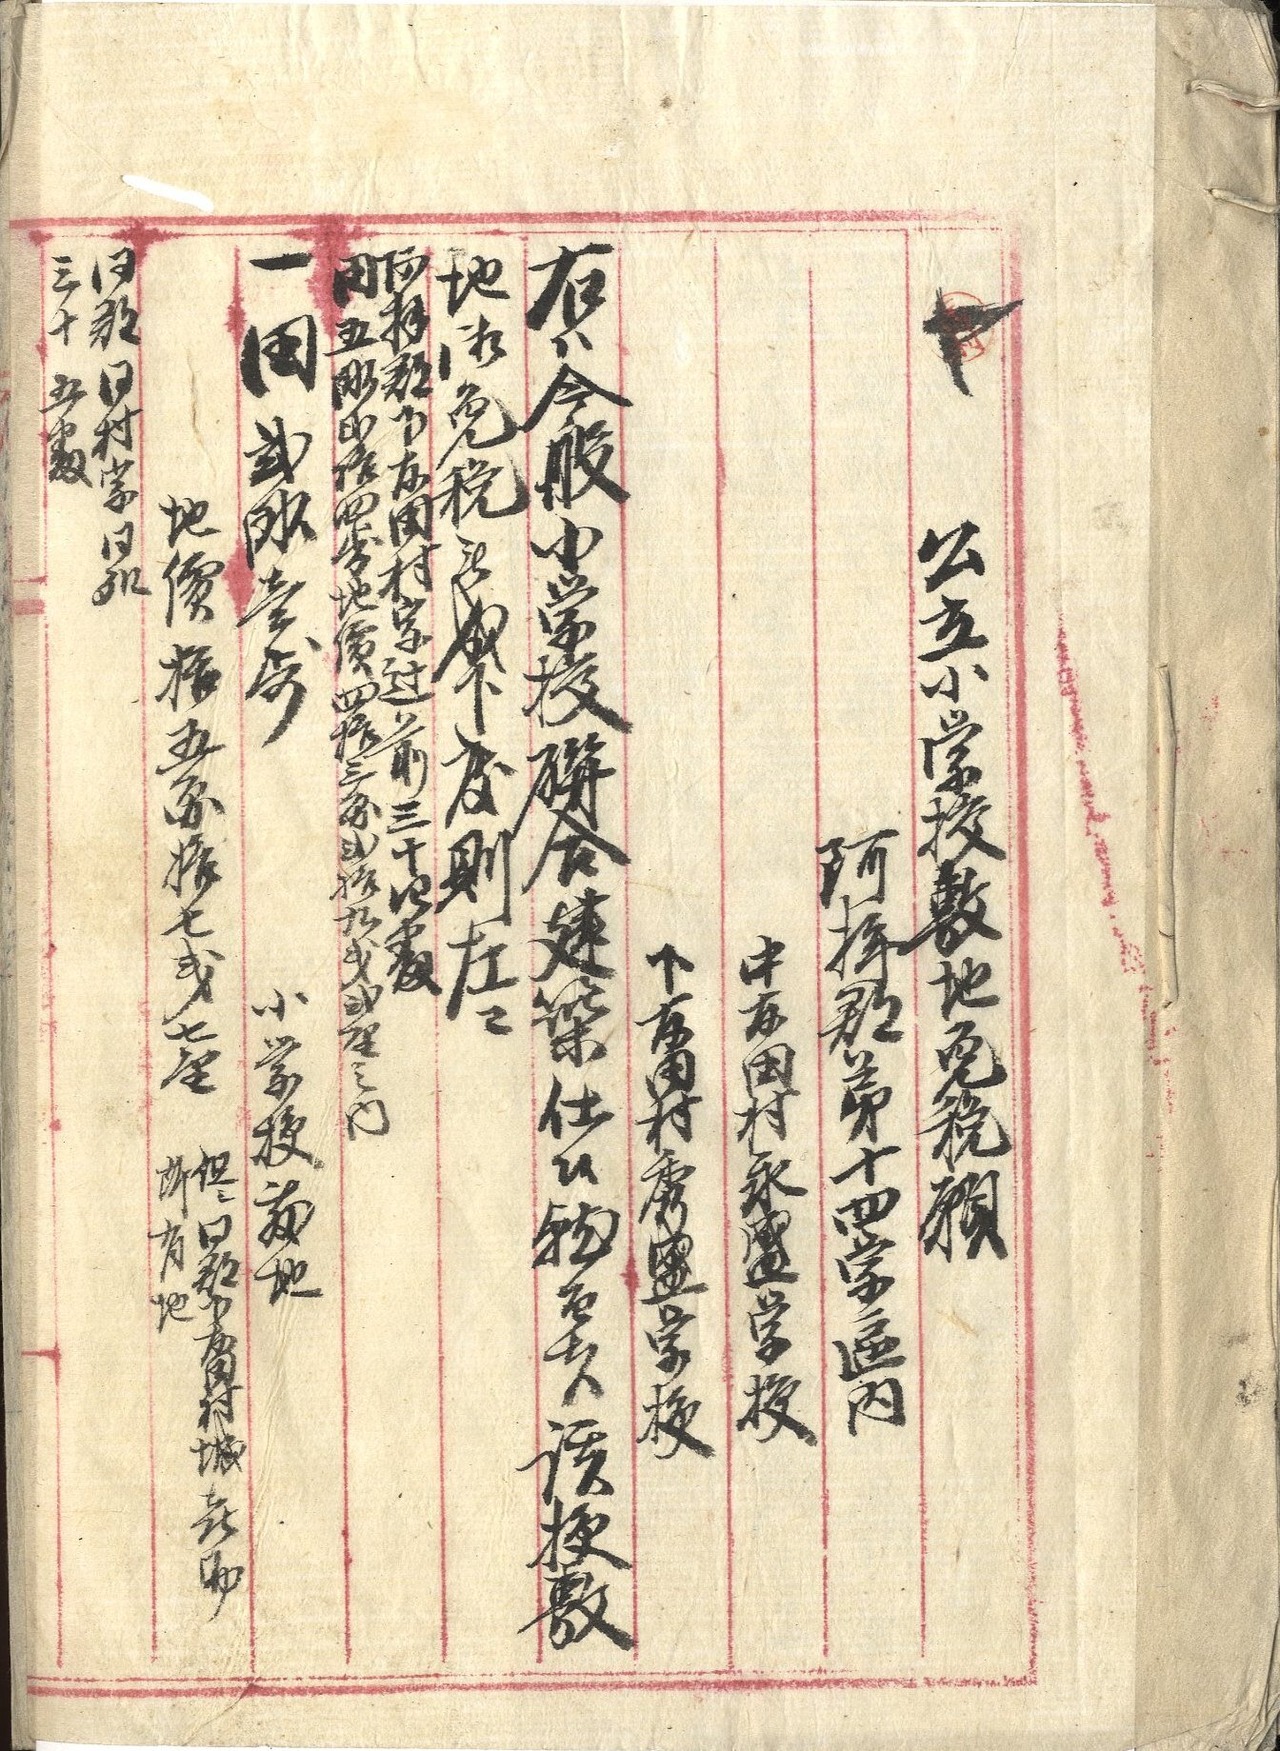 公立小学校敷地免税願
阿拝郡第十四学區内
中友田村永盛学校
下友田村秀盛学校
右ハ今般小学校聯合建築仕候ニ付該校敷
地御免税被成下度則左ニ
阿拝郡下友田村字辻前三十四番
田五畝弐拾四歩地價四拾三円弐拾九戋弐厘之内
一田弐畝壱歩 小学校敷地
地價拾五円拾七戋七厘
但シ同郡下友田村城㐂助
所有地
同郡同村字同所
三十五番